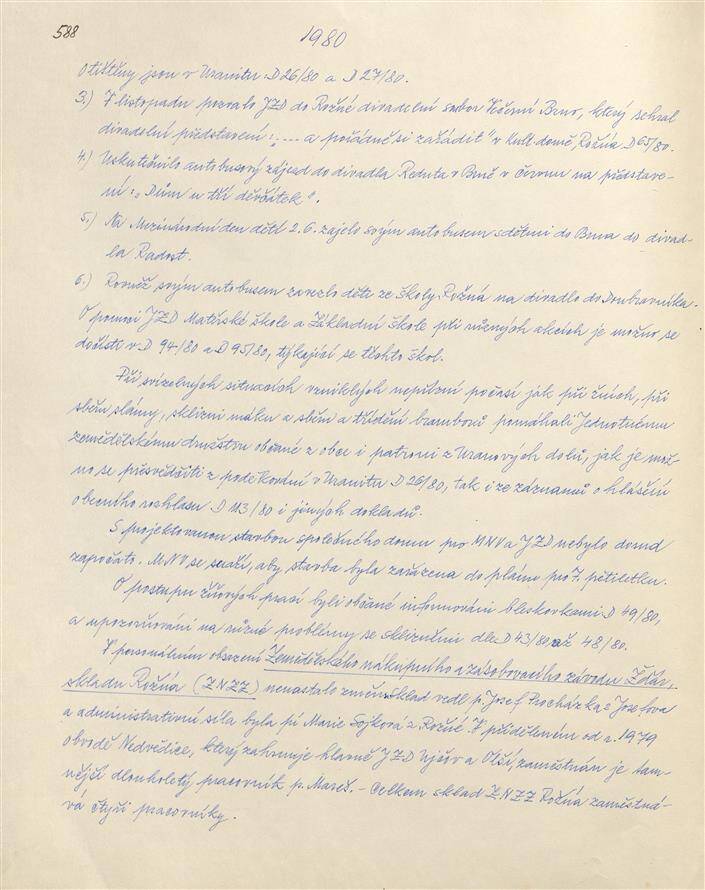 588
1980
Otištěny jsou v Uranitu D 26/80 a D 27/80.
3.) V listopadu pozvalo JZD do Rožné divadelní soubor Večerní Brno, který sehrál
divadelní představení: „.... a pořádně si zařádit" v Kult. domě, Rožná D 65/80.
4.) Uskutečnilo autobusový zájezd do divadla Reduta v Brně v červnu na představe-
ní: „Dům u tří děvčátek".
5.) Na Mezinárodní den dětí 2.6. zajelo svým autobusem s dětmi do Brna do divad-
la Radost.
6.) Rovněž svým autobusem zavezlo děti ze školy Rožná na divadlo do Doubravníka.
O pomoci JZD Mateřské škole a Základní škole při různých akcích je možno se
dočísti v D 94/80 a D 95/80, týkající se těchto škol.
Při svízelných situacích vzniklých nepřízní počasí jak při žních, při
sběru slámy, sklizni máku a sběru a třídění brambor pomáhali Jednotnému
zemědělskému družstvu občané z obce i patroni z Uranových dolů, jak je mož-
no se přesvědčiti z poděkování v Uranitu D 26/80, tak i ze záznamů o hlášení
obecního rozhlasu D 113/80 i jiných dokladů.
S projektovanou stavbou společného domu pro MNV a JZD nebylo dosud
započato. MNV se snaží, aby stavba byla zařazena do plánu pro 7. pětiletku.
O postupu žňových prací byli občané informováni bleskovkami D 49/80,
a upozorňováni na různé problémy se sklizní dle D 43/80 až 48/80.
V personálním obsazení Zemědělského nákupního a zásobovacího závodu Žďár,
skladu Rožná (ZNZZ) nenastalo změn. Sklad vedl p. Josef Procházka z Josefova
a administrativní síla byla pí Marie Sojková z Rožné. V přiděleném od r. 1979
obvodě Nedvědice, který zahrnuje hlavně JZD Ujčov a Olší, zaměstnán je tam-
nější dlouholetý pracovník p. Mareš. - Celkem sklad ZNZZ Rožná zaměstná-
vá čtyři pracovníky.